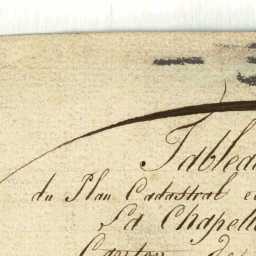 Tablea
du Plan Cadastral e
La Chapell
Canton de